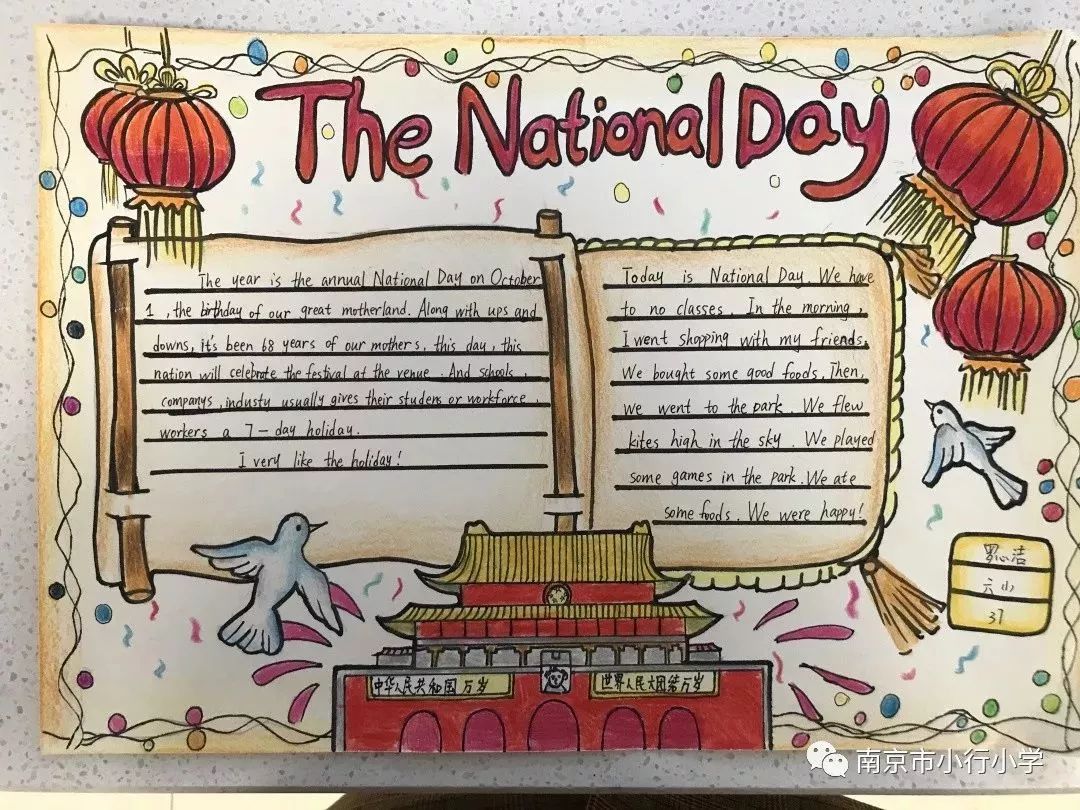 The National Day
The year is the annual National Day on October
1 ,the birthday of our great motherland. Along with ups and
downs, it's been 68 years of our mothers, this day, this
nation will celebrate the festival at the venue. And schools,
companys, industy usually gives their studens or workforce,
workers a 7-day holiday.
I very like the holiday!
Today is National Day. We have
to no classes. In the morning,
I went shopping with my friends.
We bought some good foods. Then,
we went to the park. We flew
kites high in the sky. We played
some games in the park. We ate
some foods. We were happy!
中华人民共和国万岁
世界人民大团结万岁
罗心洁
37
南京市小行小学